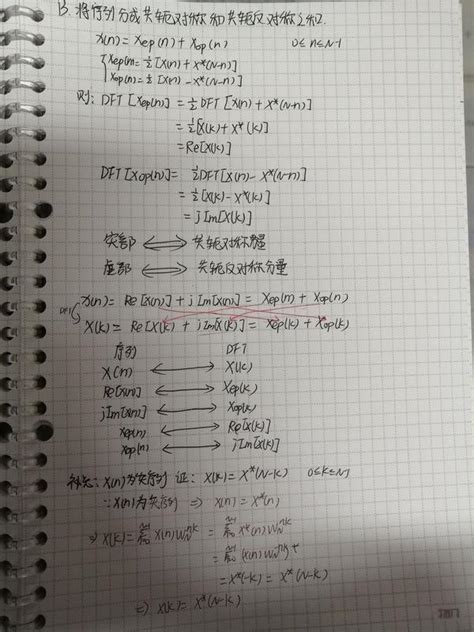 B. 将序列分成共轭对称和共轭反对称之和.
x(n) = xep(n) + xop(n) 0≤n≤N-1
[ xep(n) = ½ [x(n) + x*(N-n)]
xop(n) = ½ [x(n) - x*(N-n)]
则: DFT [xep(n)] = ½ DFT [x(n) + x*(N-n)]
= ½ [X(k) + X*(k)]
= Re[X(k)]
DFT [xop(n)] = ½ DFT [x(n) - x*(N-n)]
= ½ [X(k) - X*(k)]
= j Im[X(k)]
实部 ⟺ 共轭对称分量
虚部 ⟺ 共轭反对称分量
x(n) = Re[x(n)] + j Im[x(n)] = xep(n) + xop(n)
DFT
X(k) = Re[X(k)] + j Im[X(k)] = Xep(k) + Xop(k)
序列 DFT
x(n) ⟷ X(k)
Re[x(n)] ⟷ Xep(k)
jIm[x(n)] ⟷ Xop(k)
xep(n) ⟷ Re[X(k)]
xop(n) ⟷ jIm[X(k)]
x(n)为实序列 证: X(k) = X*(N-k) 0≤k≤N-1
∵x(n)为实序列 ⇒ x(n) = x*(n)
⇒ X(k) = Σ x(n)W_N^{nk} = Σ x*(n)W_N^{nk}
= X*(-k) = X*(N-k)
⇒ X(k) = X*(N-k)